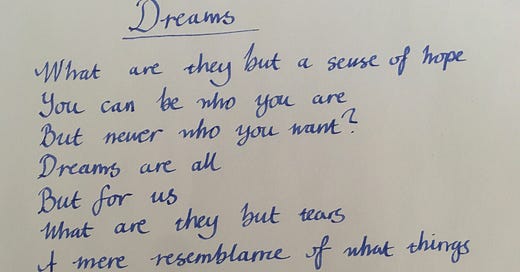 Dreams
What are they but a sense of hope
You can be who you are
But never who you want?
Dreams are all
But for us
What are they but tears
A mere resemblance of what things